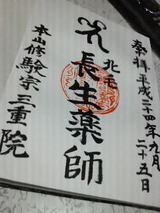 奉拝 平成二十四年九月二十五日
北毛
長生薬師
本山修験宗 三重院